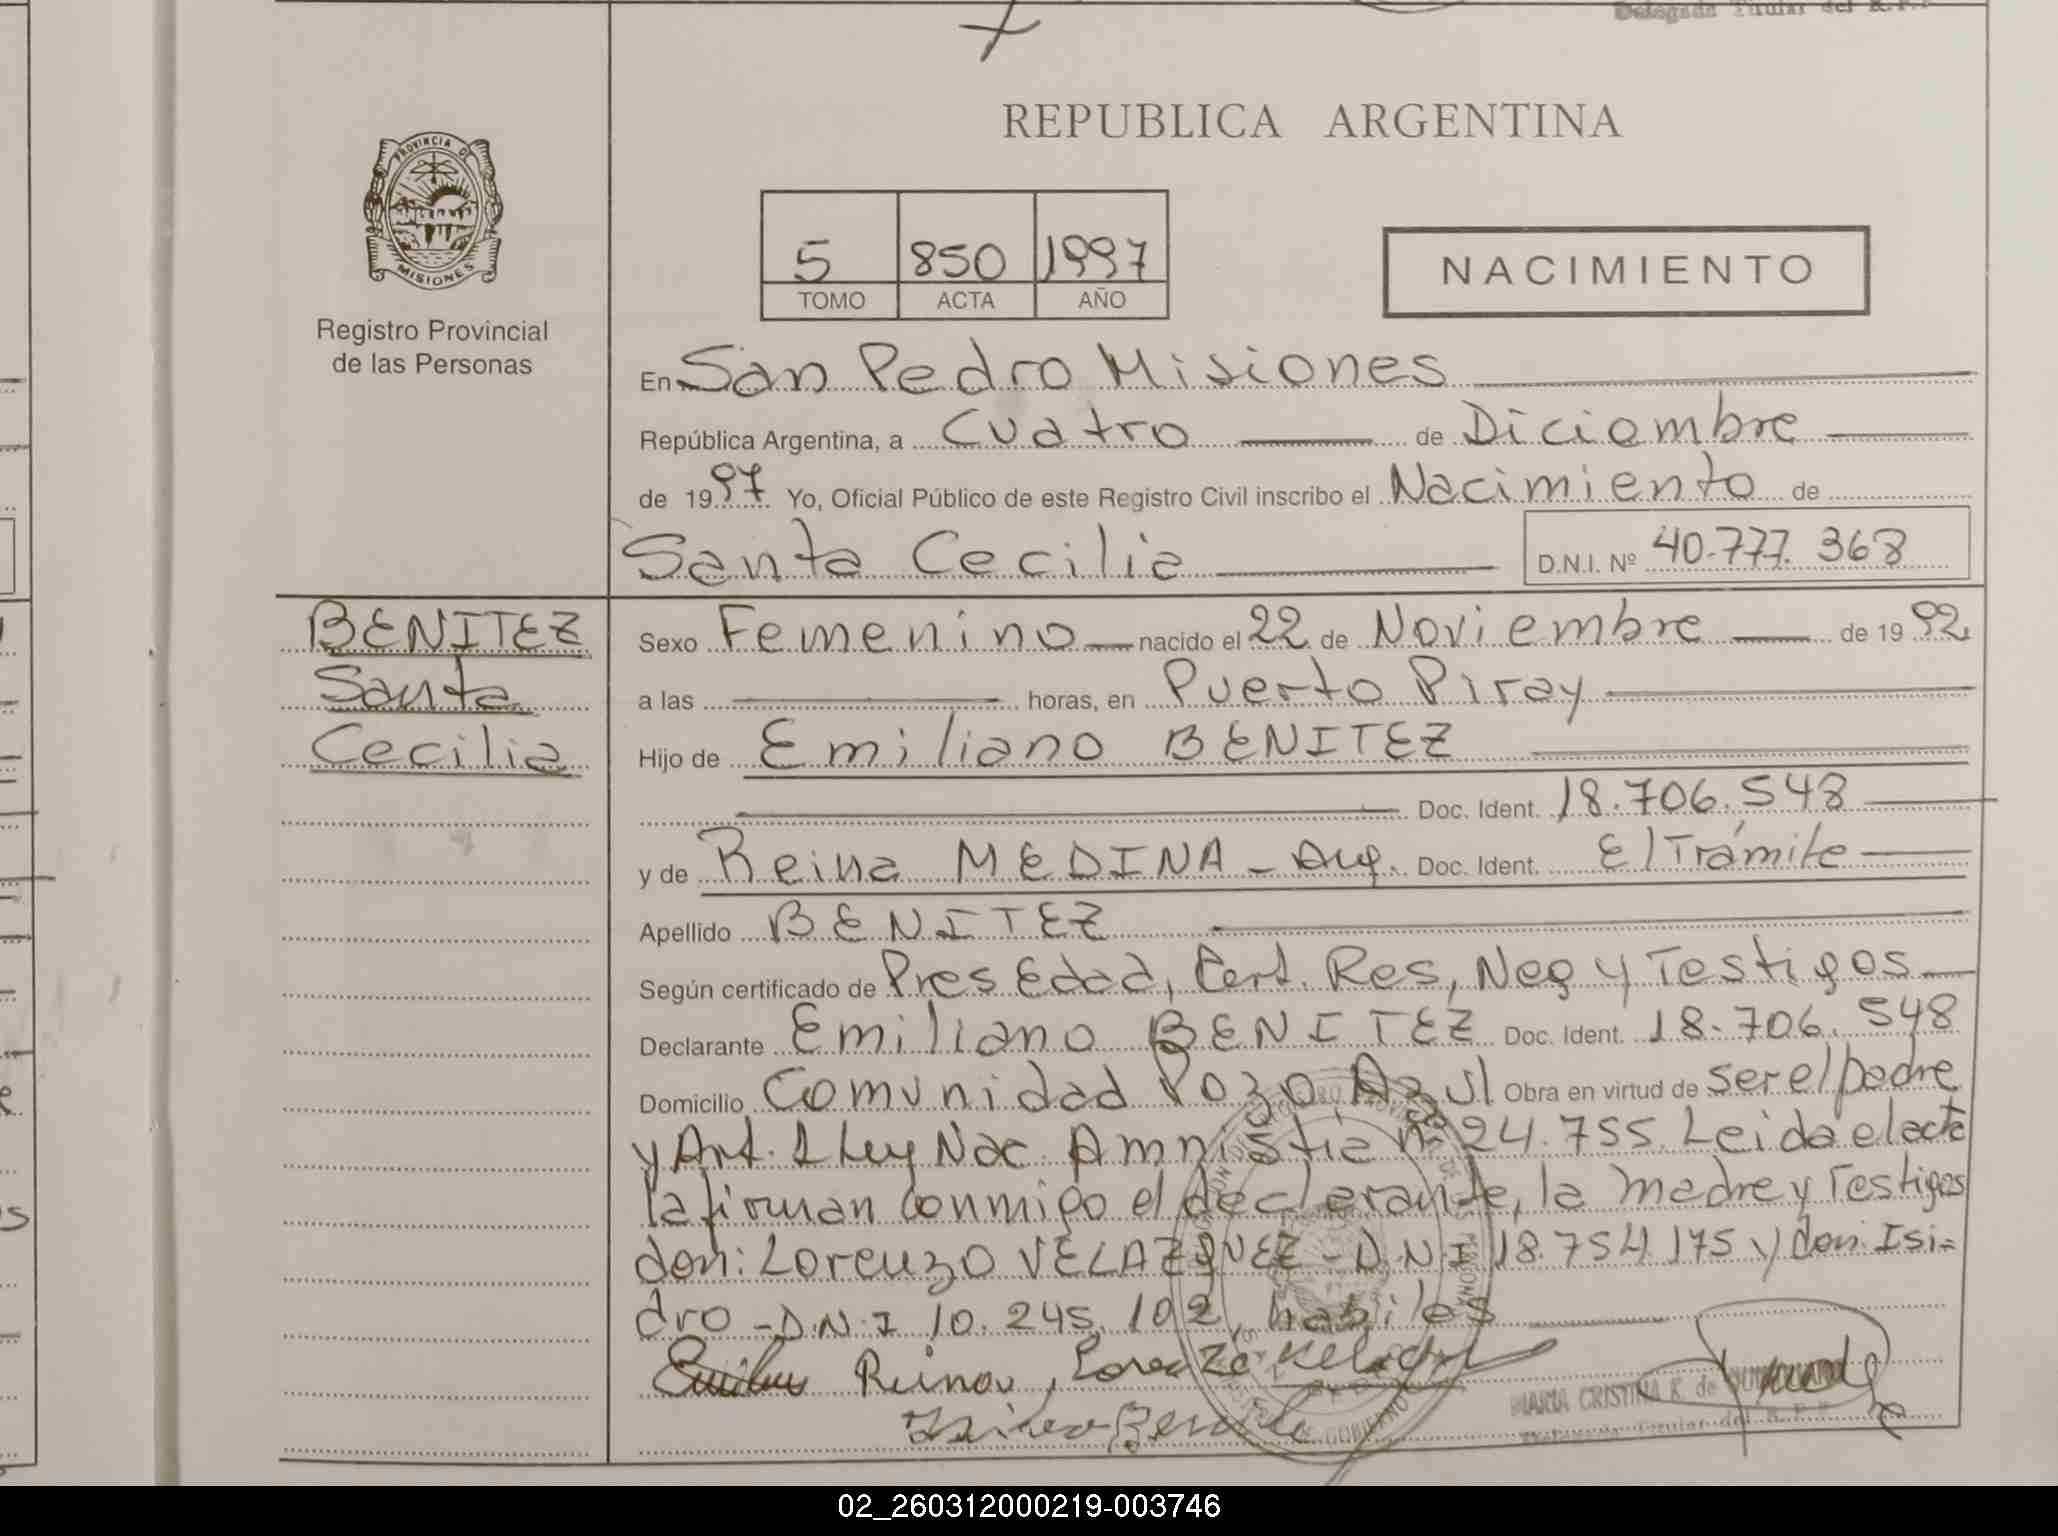 Delegada Titular del R.P.P
REPUBLICA ARGENTINA
PROVINCIA DE
MISIONES
Registro Provincial
de las Personas
5 850 1997
TOMO ACTA AÑO
NACIMIENTO
En San Pedro Misiones
República Argentina, a Cuatro de Diciembre
de 1997 Yo, Oficial Público de este Registro Civil inscribo el Nacimiento de
Santa Cecilia D.N.I. Nº 40.777.368
BENITEZ
Santa
Cecilia
Sexo Femenino nacido el 22 de Noviembre de 1992
a las horas, en Puerto Piray
Hijo de Emiliano BENITEZ
Doc. Ident. 18.706.548
y de Reina MEDINA - Arg. Doc. Ident. El Trámite
Apellido BENITEZ
Según certificado de Pres Edad, Cert. Res, Neg y Testigos
Declarante Emiliano BENITEZ Doc. Ident. 18.706.548
Domicilio Comunidad Pozo Azul Obra en virtud de ser el padre
y Art. 1 Ley Nac. Amnistia nº 24.755. Leida el acta
la firman conmigo el declarante, la madre y Testigos
don: Lorenzo VELAZQUEZ - D.N.I 18.754.175 y don Isi=
dro - D.N.I 10.245.102, habiles
Reina, Lorenzo
MARIA CRISTINA K. de
Titular del R.P.P
02_260312000219-003746